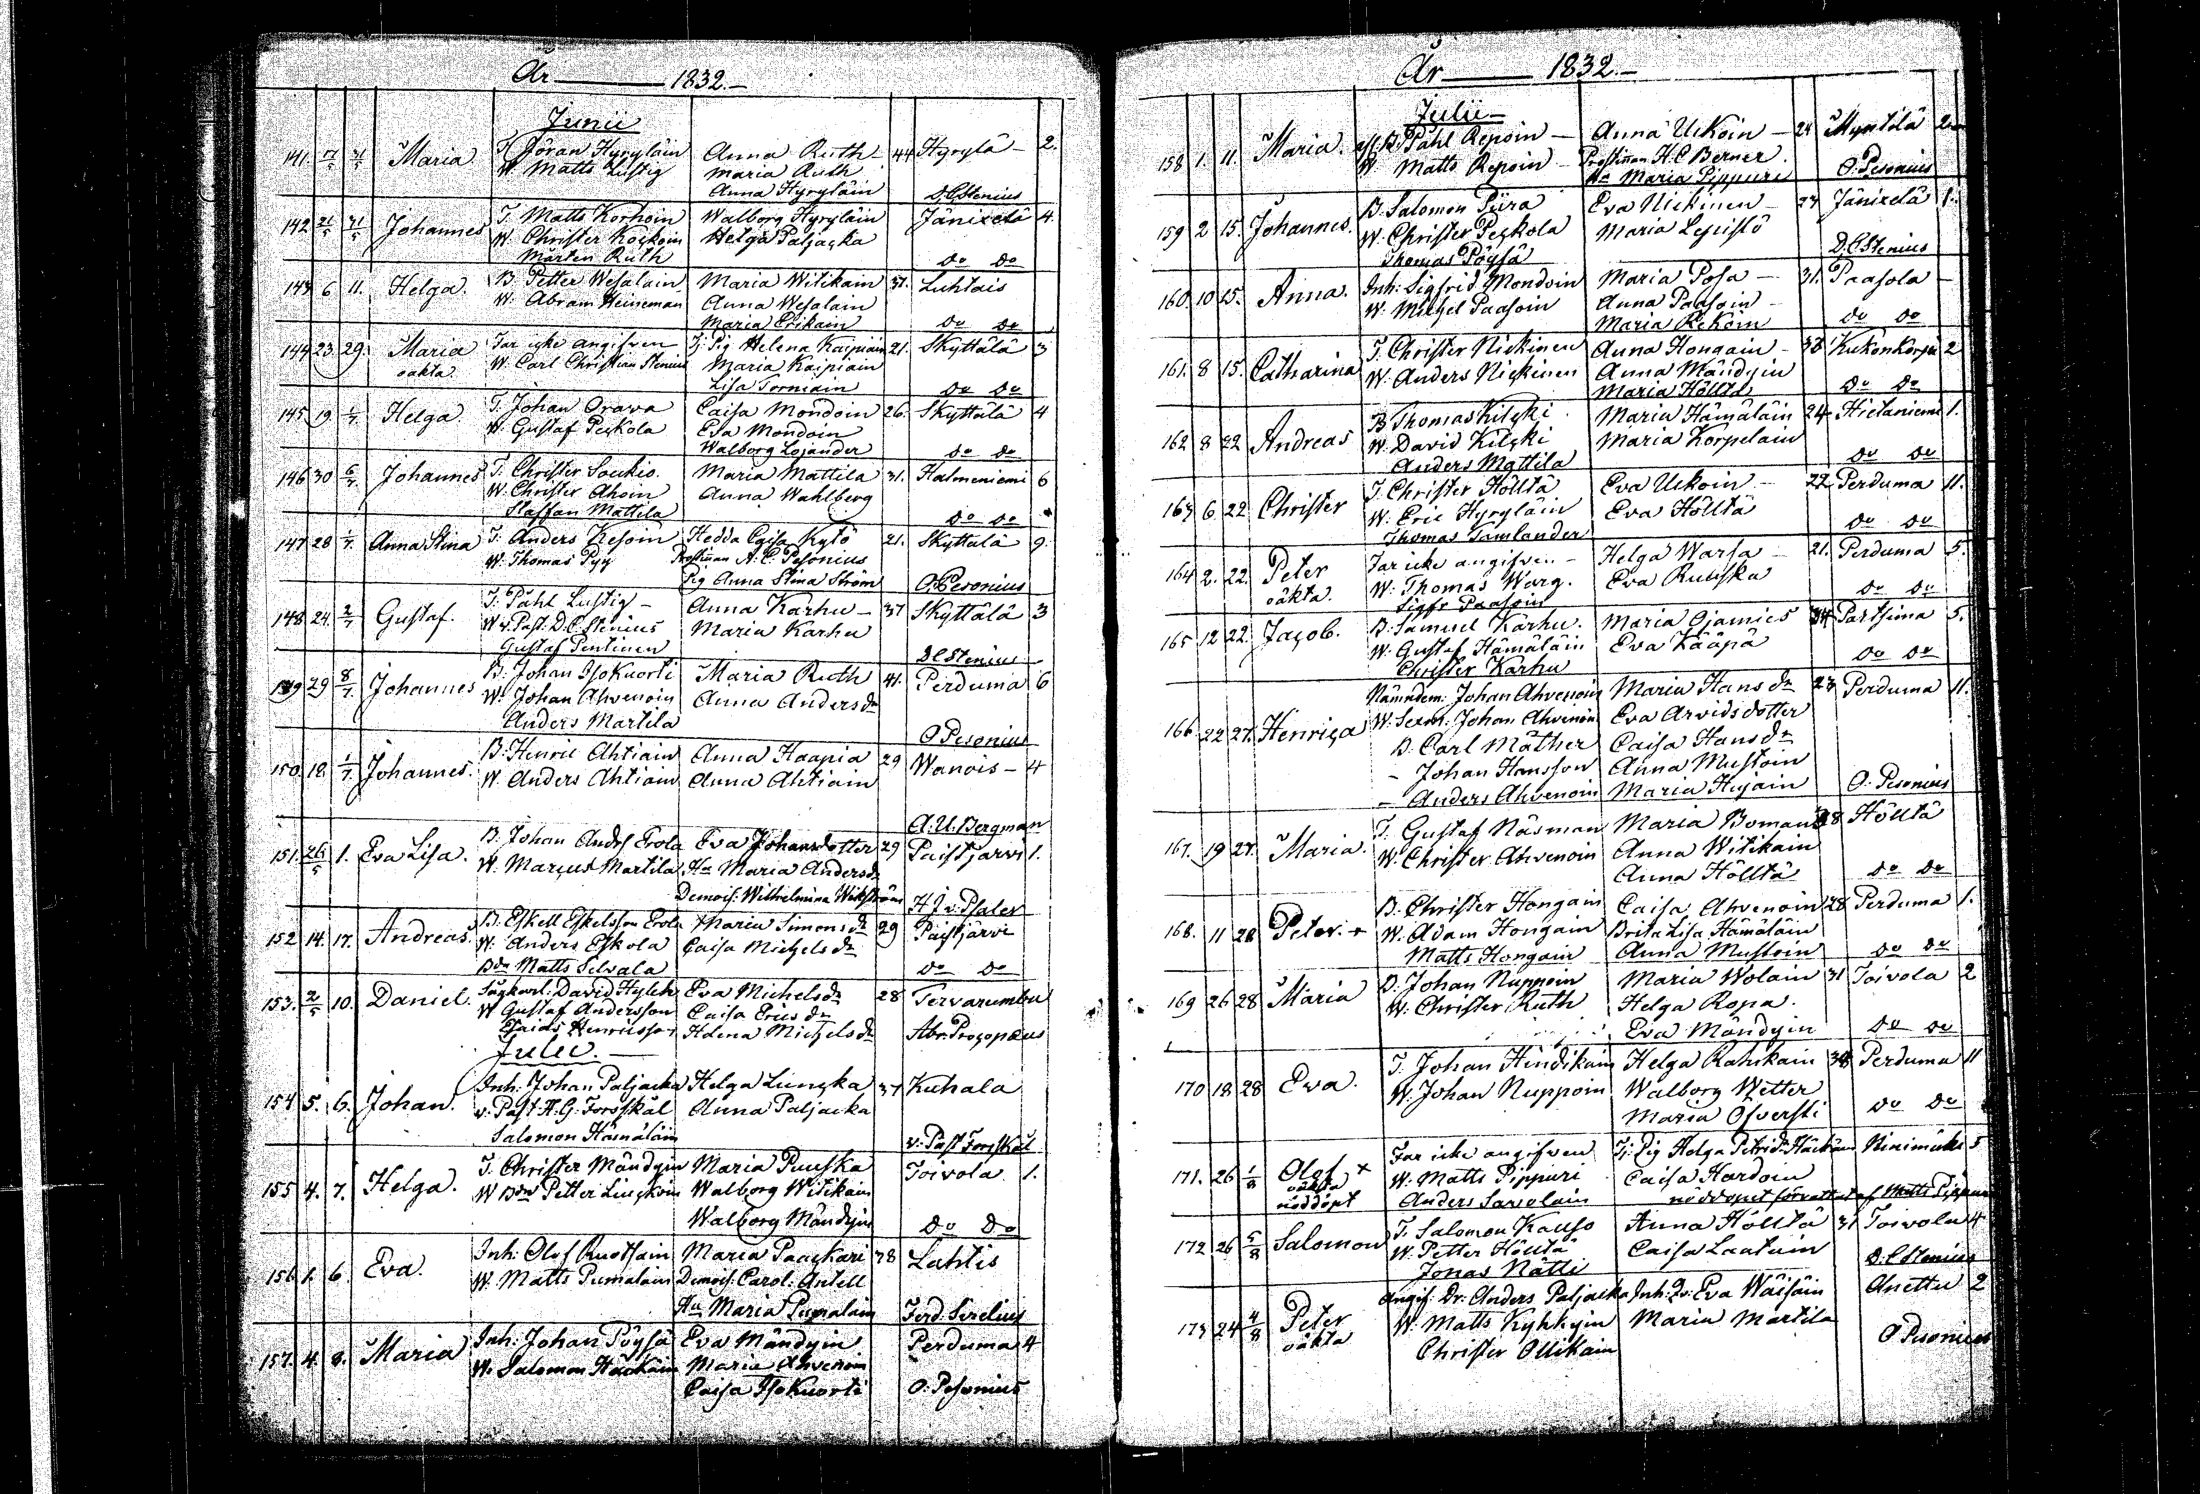 År 1832.
Junii
141. 17/5 31/5 Maria T. Jöran Hyryläin Anna Ruth 44 Hyrylä 2.
W Matts Lustig Maria Ruth
Anna Hyryläin D. C Stenius
142 21/5 31/5 Johannes T. Matts Korhoin Walborg Hyryläin Jänixelä 4.
W. Christer Kockoin Helga Paljacka
Mårten Ruth Do Do
143 6 11. Helga. B. Petter Wesalain Maria Witikain 37. Luhtais
W. Abram Heineman Anna Wesalain
Maria Erikain Do Do
144 23. 29. Maria Far icke angifven Tj. Pig Helena Kaipiain 21. Skyttälä 3
oäkta. W. Carl Christian Stenius Maria Kaipiain
Lisa Tormain Do Do
145 19 1/7. Helga. T. Johan Orava Caisa Mondoin 26. Skyttälä 4
W. Gustaf Peckola Eva Mondoin
Walborg Lojander Do Do
146 30 6/7. Johannes T. Christer Soukio. Maria Mattila 31. Halmeniemi 6
W. Christer Ahoin Anna Wahlberg
Staffan Mattila Do Do
147 28 1/7. Anna Stina T. Anders Kesoin Hedda Caisa Kytö 21. Skyttälä 9.
W. Thomas Pyy Prostinnan A. C. Pesonius
Pig Anna Stina Ström O. Pesonius
148 24. 2/7 Gustaf. T. Påhl Lustig Anna Karhu 37 Skyttälä 3
W v. Past. D. C Stenius Maria Karhu
Gustaf Pentinen D C Stenius
149 29 8/7. Johannes B. Johan Isokuorti Maria Ruth 41. Perduma 6
W. Johan Ahvenoin Anna Anders dr
Anders Martila O Pesonius
150. 18. 1/7. Johannes. B. Henric Ahtiain Anna Haapia 29 Wanois 4
W. Anders Ahtiain Anna Ahtiain
A. U. Bergman
151. 26/5 1. Eva Lisa. B. Johan Anders Erola Eva Johansdotter 29 Paistjärvi 1.
W. Marcus Martila Hu Maria Anders dr
Demois: Wilhelmina Wikström H J v. Psaler
152 14. 17. Andreas. B. Eskell Eskelsson Erola Maria Simons dr 29 Paistjärvi
W. Anders Eskola Caisa Michels dr
Bdn Matts Selvala Do Do
153. 2/5 10. Daniel. Sågkarl: David Hyleh Eva Michels dr 28 Tervarumbu
W Gustaf Andersson Caisa Erics dr
Esaias Henricsson Helena Michels dr Abr: Procopæus
Julii.
154 5. 6. Johan. Inh: Johan Paljacka Helga Liucka 37 Kuhala
v. Past H. G. Forsskål Anna Paljacka
Salomon Hämäläin v. Past Forsskål
155 4. 7. Helga. T. Christer Mändyin Maria Puuska Toivola 1.
W Bdn Petter Liuckoin Walborg Witikain
Walborg Mändyin Do Do
156 1. 6. Eva. Inh: Olof Ruotsain Maria Paackari 38 Lahtis
W. Matts Pumalain Demois: Carol: Antell
Hu Maria Pumalain Ferd: Sirelius
157. 4. 8. Maria Inh: Johan Pöysä Eva Mändyin. Perduma 4
W. Salomon Häckäin Maria Ahvenoin
Caisa Isokuorti O. Pesonius
År 1832.
Julii
158 1. 11. Maria. B. Påhl Repoin Anna Uckoin 24 Myntilä 2
W. Matts Repoin Prostinnan H. C Berner.
Hu Maria Pippuri O. Pesonius
159 2 15. Johannes. B. Salomon Piira Eva Nickinen 27 Jänixelä 1.
W. Christer Peckola Maria Lepistö
Thomas Pöysä D. C Stenius
160. 10 15. Anna. Inh: Sigfrid Mondoin Maria Posa 31. Paasola
W. Michel Paasoin Anna Paasoin
Maria Rekoin Do Do
161. 8 15. Catharina T. Christer Nickinen Anna Hongain 38 Kukonkorpi 2
W. Anders Nickinen Anna Mändyin
Maria Hölltä Do Do
162 8 22 Andreas B Thomas Kilpki Maria Hämäläin 24 Hietaniemi 1.
W. David Kilpki Maria Korpelain
Anders Mattila Do Do
163 6 22 Christer T. Christer Hölltä Eva Uckoin 22 Perduma 11.
W. Eric Hyryläin Eva Hölltä
Thomas Tamlander Do Do
164 2. 22. Peter Far icke angifven Helga Warsa 21. Perduma 5.
oäkta. W. Thomas Warg. Eva Ruuska
Sigfr Paasoin Do Do
165 12 22. Jacob. B. Samuel Karhu. Maria Ojamies 34 Partsima 5.
W. Gustaf Hämäläin Eva Kääpä
Christer Karhu Do Do
166 22 27. Henrica Nämndem: Johan Ahvenoin Maria Hans dr 23 Perduma 11.
W. Sexm: Johan Ahvenoin Eva Arvidsdotter
B. Carl Mäther Caisa Hans dr
Johan Hansson Anna Mustoin
Anders Ahvenoin Maria Hujain O. Pesonius
167. 19 27. Maria. T. Gustaf Näsman Maria Boman 38 Hölltä
W. Christer Ahvenoin Anna Witikain
Anna Hölltä Do Do
168. 11 28 Peter. + B. Christer Hongain Caisa Ahvenoin 28 Perduma 1.
W. Adam Hongain Brita Lisa Hämäläin
Matts Hongain Anna Mustoin Do Do
169 26 28 Maria B. Johan Nuppoin Maria Wolain 31 Toivola 2
W. Christer Ruth Helga Ropa.
Eva Mändyin Do Do
170 18 28 Eva. T. Johan Hindikain Helga Rahikain 38 Perduma 11
W. Johan Nuppoin Walborg Wetter
Maria Ofversti Do Do
171. 26 1/8 Olof + Far icke angifven Tj. Pig Helga Petrid: Häckäin Ninimäki 5
oäkta W. Matts Pippuri Caisa Hardoin
nöddöpt Anders Savolain nöddopet förrättat af Matts Pippuri
172 26 5/8 Salomon T. Salomon Kauso Anna Hölltä 31 Toivola 4
W. Petter Hölltä Caisa Laatuin
Jonas Nätti D. C Stenius
173 24 4/8 Peter Angif: Dr: Anders Paljacka Inh: Q: Eva Wäisäin Anettu 2
oäkta W. Matts Kyhkyin Maria Martila
Christer Ollikain O Pesonius